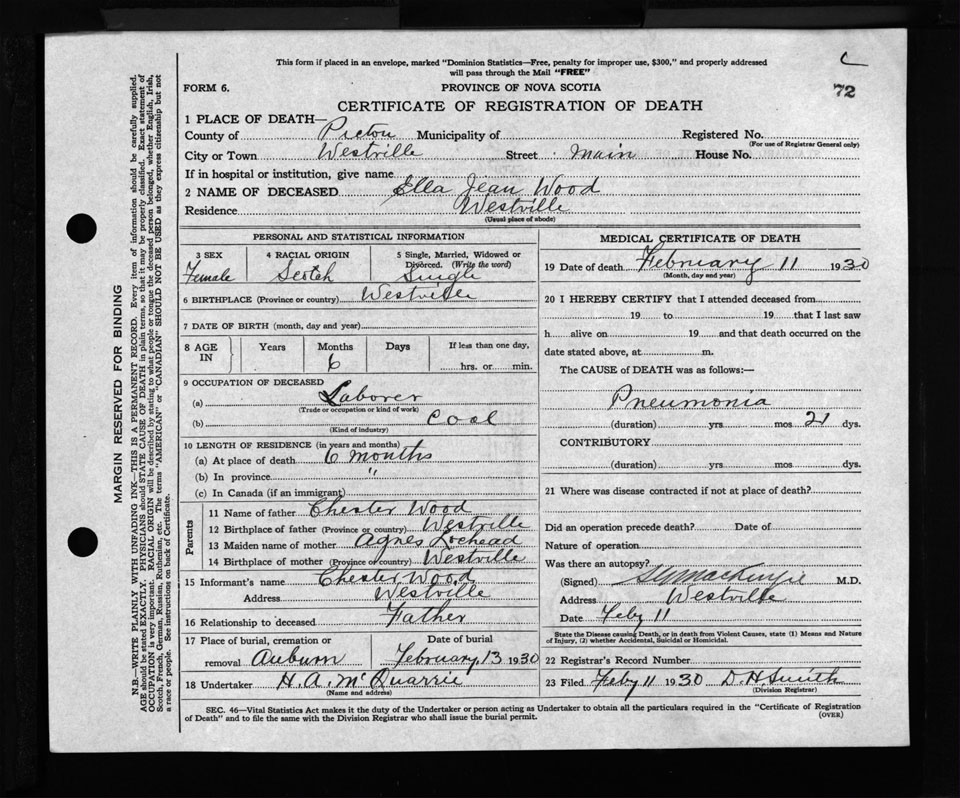 This form if placed in an envelope, marked "Dominion Statistics—Free, penalty for improper use, $300," and properly addressed
will pass through the Mail "FREE"
C
72
FORM 6.
PROVINCE OF NOVA SCOTIA
CERTIFICATE OF REGISTRATION OF DEATH
1 PLACE OF DEATH—
County of Pictou Municipality of Registered No.
(For use of Registrar General only)
City or Town Westville Street Main House No.
If in hospital or institution, give name
2 NAME OF DECEASED Ella Jean Wood
Residence Westville
(Usual place of abode)
PERSONAL AND STATISTICAL INFORMATION
3 SEX Female
4 RACIAL ORIGIN Scotch
5 Single, Married, Widowed or
Divorced. (Write the word)
Single
6 BIRTHPLACE (Province or country) Westville
7 DATE OF BIRTH (month, day and year)
8 AGE IN Years Months Days If less than one day,
6 hrs. or min.
9 OCCUPATION OF DECEASED
(a) Laborer
(Trade or occupation or kind of work)
(b) Coal
(Kind of industry)
10 LENGTH OF RESIDENCE (in years and months)
(a) At place of death 6 months
(b) In province "
(c) In Canada (if an immigrant)
Parents
11 Name of father Chester Wood
12 Birthplace of father (Province or country) Westville
13 Maiden name of mother Agnes Lochead
14 Birthplace of mother (Province or country) Westville
15 Informant's name Chester Wood
Address Westville
16 Relationship to deceased Father
17 Place of burial, cremation or
removal Auburn
Date of burial
February 13 1930
18 Undertaker H. A. McQuarrie
(Name and address)
MEDICAL CERTIFICATE OF DEATH
19 Date of death February 11 1930
(Month, day and year)
20 I HEREBY CERTIFY that I attended deceased from
19 to 19 that I last saw
h alive on 19 and that death occurred on the
date stated above, at m.
The CAUSE of DEATH was as follows:—
Pneumonia
(duration) yrs. mos 21 dys.
CONTRIBUTORY
(duration) yrs. mos. dys.
21 Where was disease contracted if not at place of death?
Did an operation precede death? Date of
Nature of operation
Was there an autopsy?
(Signed) MacKenzie M.D.
Address Westville
Date Feby 11
State the Disease causing Death, or in death from Violent Causes, state (1) Means and Nature
of Injury, (2) whether Accidental, Suicidal or Homicidal.
22 Registrar's Record Number
23 Filed Feby 11 1930 D. H. Smith
(Division Registrar)
SEC. 46—Vital Statistics Act makes it the duty of the Undertaker or person acting as Undertaker to obtain all the particulars required in the "Certificate of Registration
of Death" and to file the same with the Division Registrar who shall issue the burial permit.
(OVER)
MARGIN RESERVED FOR BINDING
N.B.—WRITE PLAINLY WITH UNFADING INK—THIS IS A PERMANENT RECORD. Every item of information should be carefully supplied.
AGE should be stated EXACTLY. PHYSICIANS should STATE CAUSE OF DEATH in plain terms, so that it may be properly classified. Exact statement of
OCCUPATION is very important. RACIAL ORIGIN will be described by stating to what people or tongue the deceased person belonged, whether English, Irish,
Scotch, French, German, Russian, Ruthenian, etc. The terms "AMERICAN" or "CANADIAN" SHOULD NOT BE USED as they express citizenship but not
a race or people. See instructions on back of Certificate.